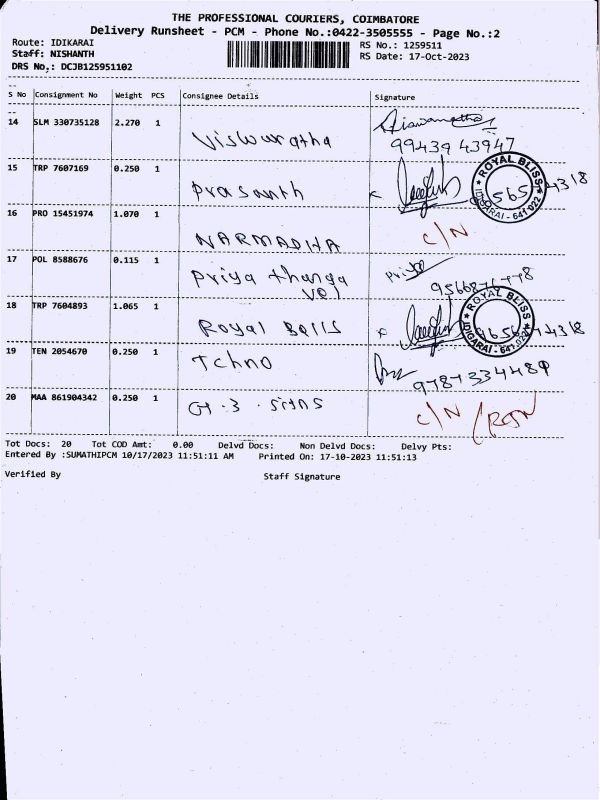 THE PROFESSIONAL COURIERS, COIMBATORE
Delivery Runsheet - PCM - Phone No.:0422-3505555 - Page No.:2
Route: IDIKARAI
RS No.: 1259511
Staff: NISHANTH
RS Date: 17-Oct-2023
DRS No.: DCJB125951102
S No Consignment No Weight PCS Consignee Details Signature
14 SLM 330735128 2.270 1 Viswanatha
99439 43947
15 TRP 7607169 0.250 1 Prasanth
ROYAL BLISS
IDIGARAI - 641 022
16 PRO 15451974 1.070 1 NARMADHA C/N
17 POL 8588676 0.115 1 Priya thanga Priya
vel
18 TRP 7604893 1.065 1 Royal Bells
ROYAL BLISS
IDIGARAI - 641 022
19 TEN 2054670 0.250 1 Tchno
9787334489
20 MAA 861904342 0.250 1 G1.3 . signs C/N /RTN
Tot Docs: 20 Tot COD Amt: 0.00 Delvd Docs: Non Delvd Docs: Delvy Pts:
Entered By :SUMATHIPCM 10/17/2023 11:51:11 AM Printed On: 17-10-2023 11:51:13
Verified By Staff Signature